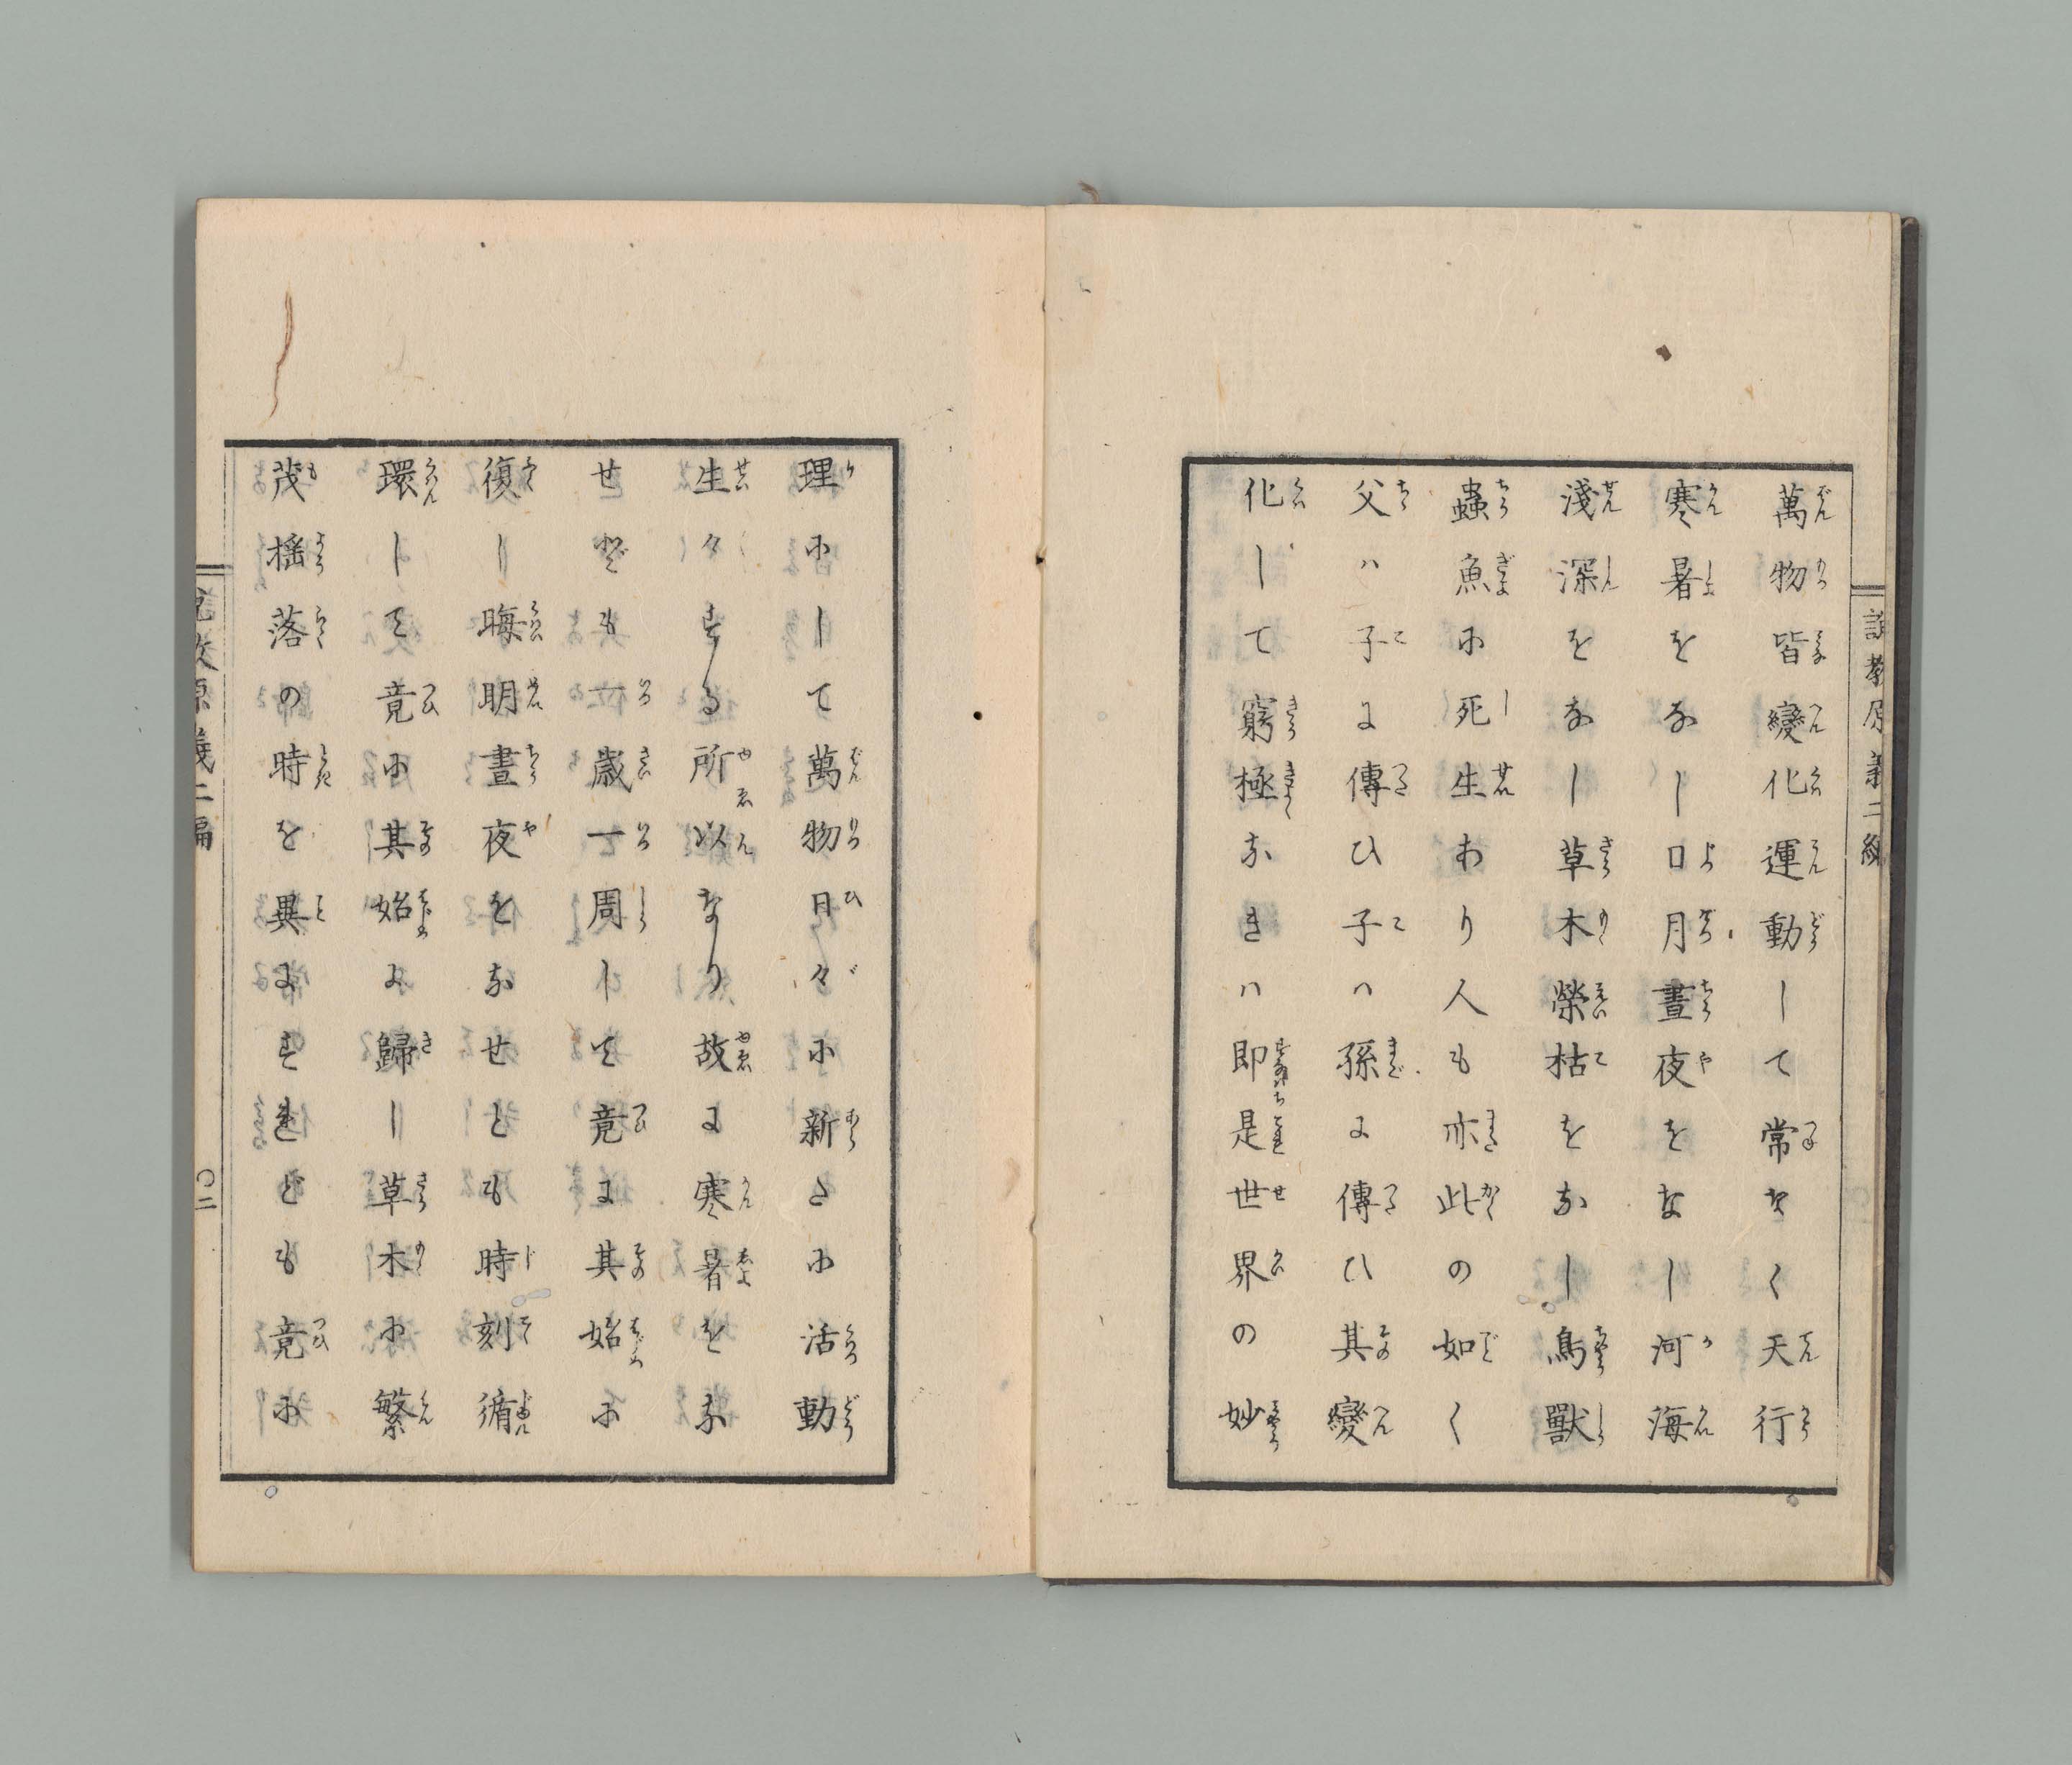 萬物皆變化運動して常なく天行
寒暑をなし日月晝夜をなし河海
淺深をなし草木榮枯をなし鳥獸
蟲魚に死生あり人も亦此の如く
父ハ子に傳ひ子ハ孫に傳ひ其變
化して窮極なきハ即是世界の妙
理にして萬物日々に新たに活動
生々する所以なり故に寒暑をな
せども一歳一周して竟に其始に
復し晦明晝夜をなせとも時刻循
環して竟に其始に歸し草木に繁
茂榣落の時を異にすれども竟に
説教原義二編
〇二